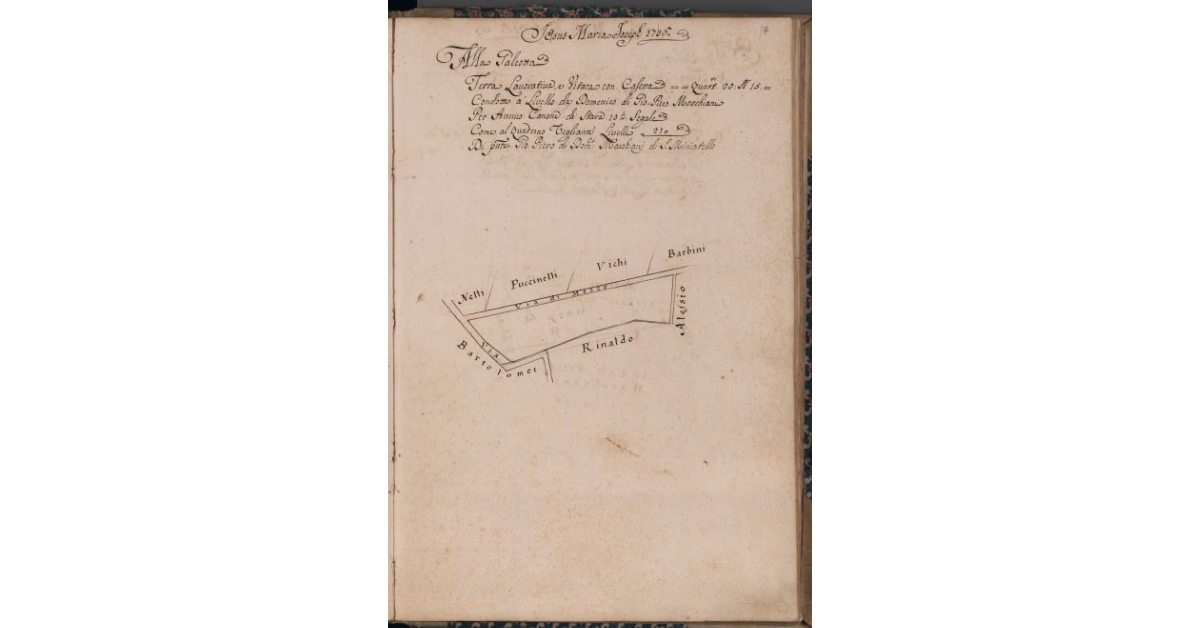 17
Jesus Maria Joseph 1786
Alla
Terra Lavorativa, e Vitata con Casetta Quart. 20. N 15.
Condotta a Livello da Domenico di Pio. Piero Marchiani
Per Annuo Canone di Staia 10 Segale
Come al Quaderno Livelli 210
Di Piero di Dom. di S. Miniatello
Nelli
Puccinelli
Vichi
Barbini
Via di Mezzo
Alessio
Via
Bartolomei
Rinaldo